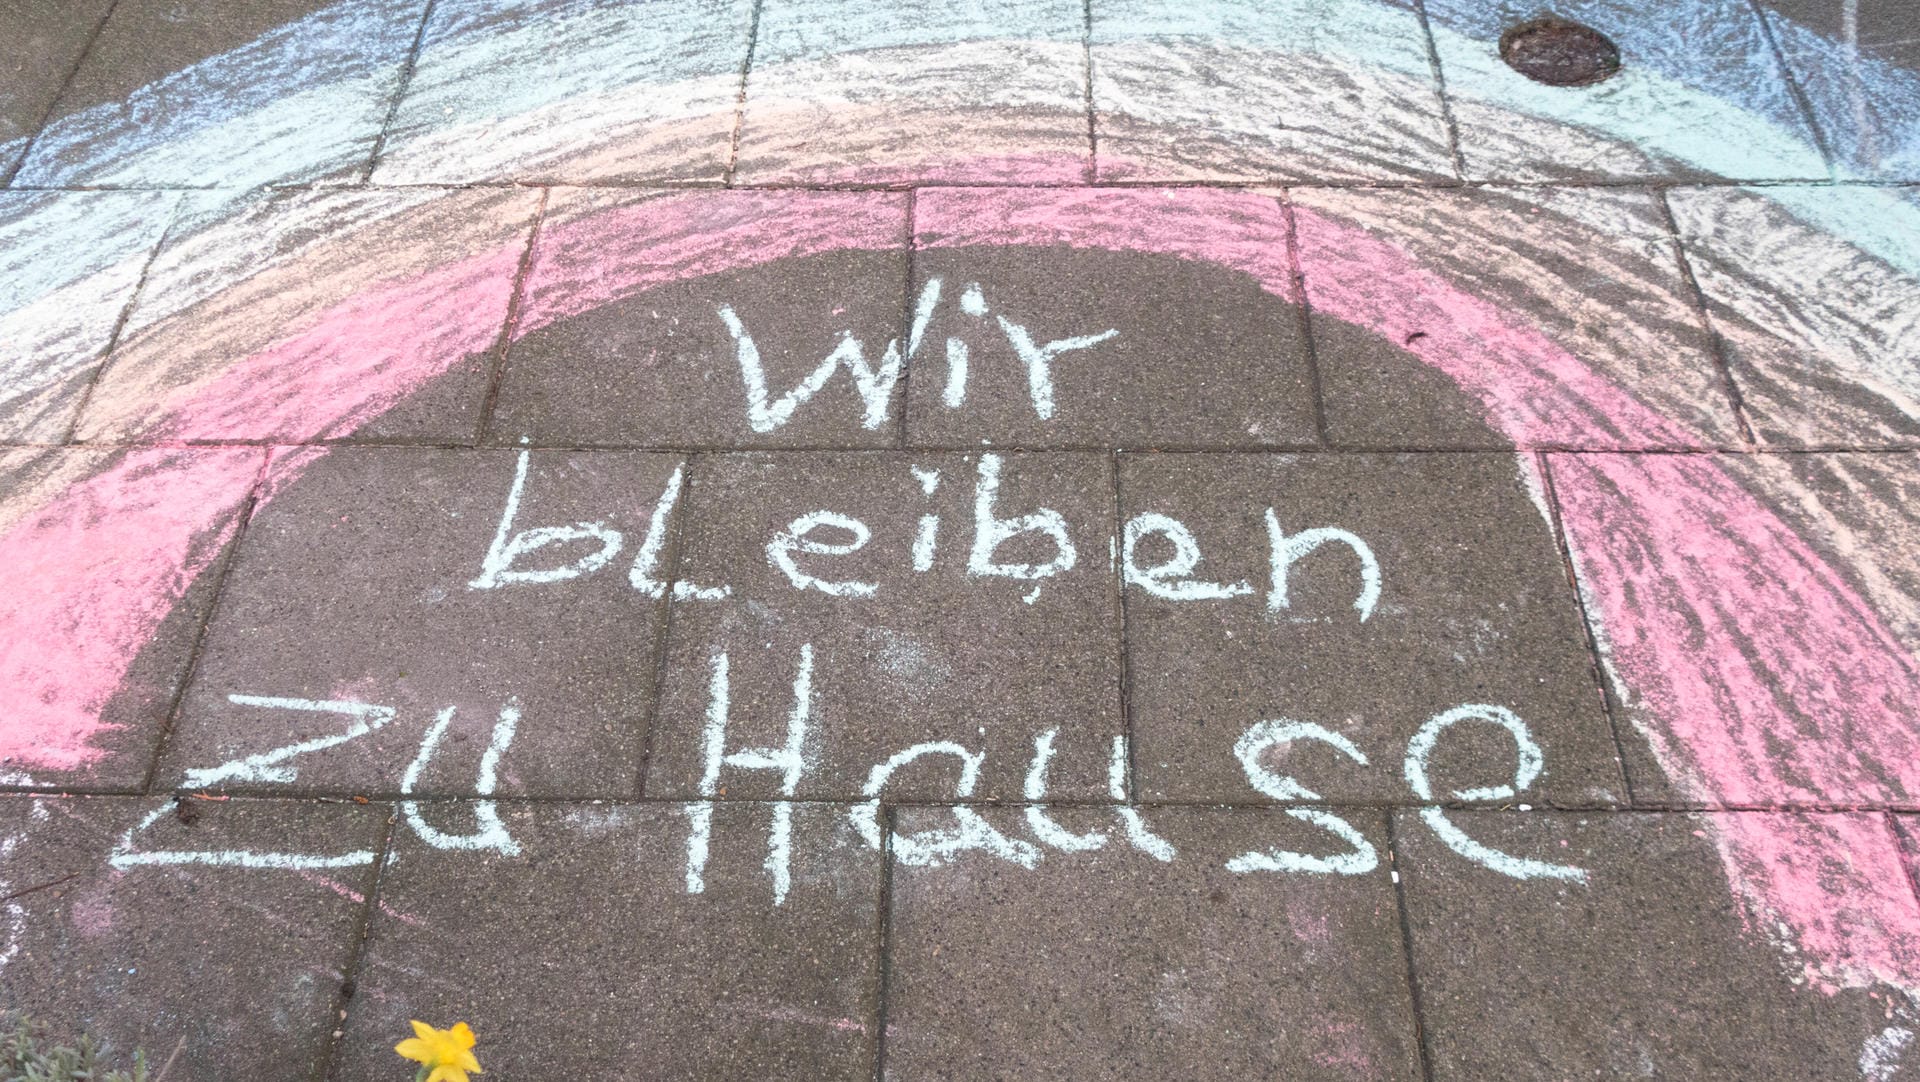 Wir
bleiben
zu Hause